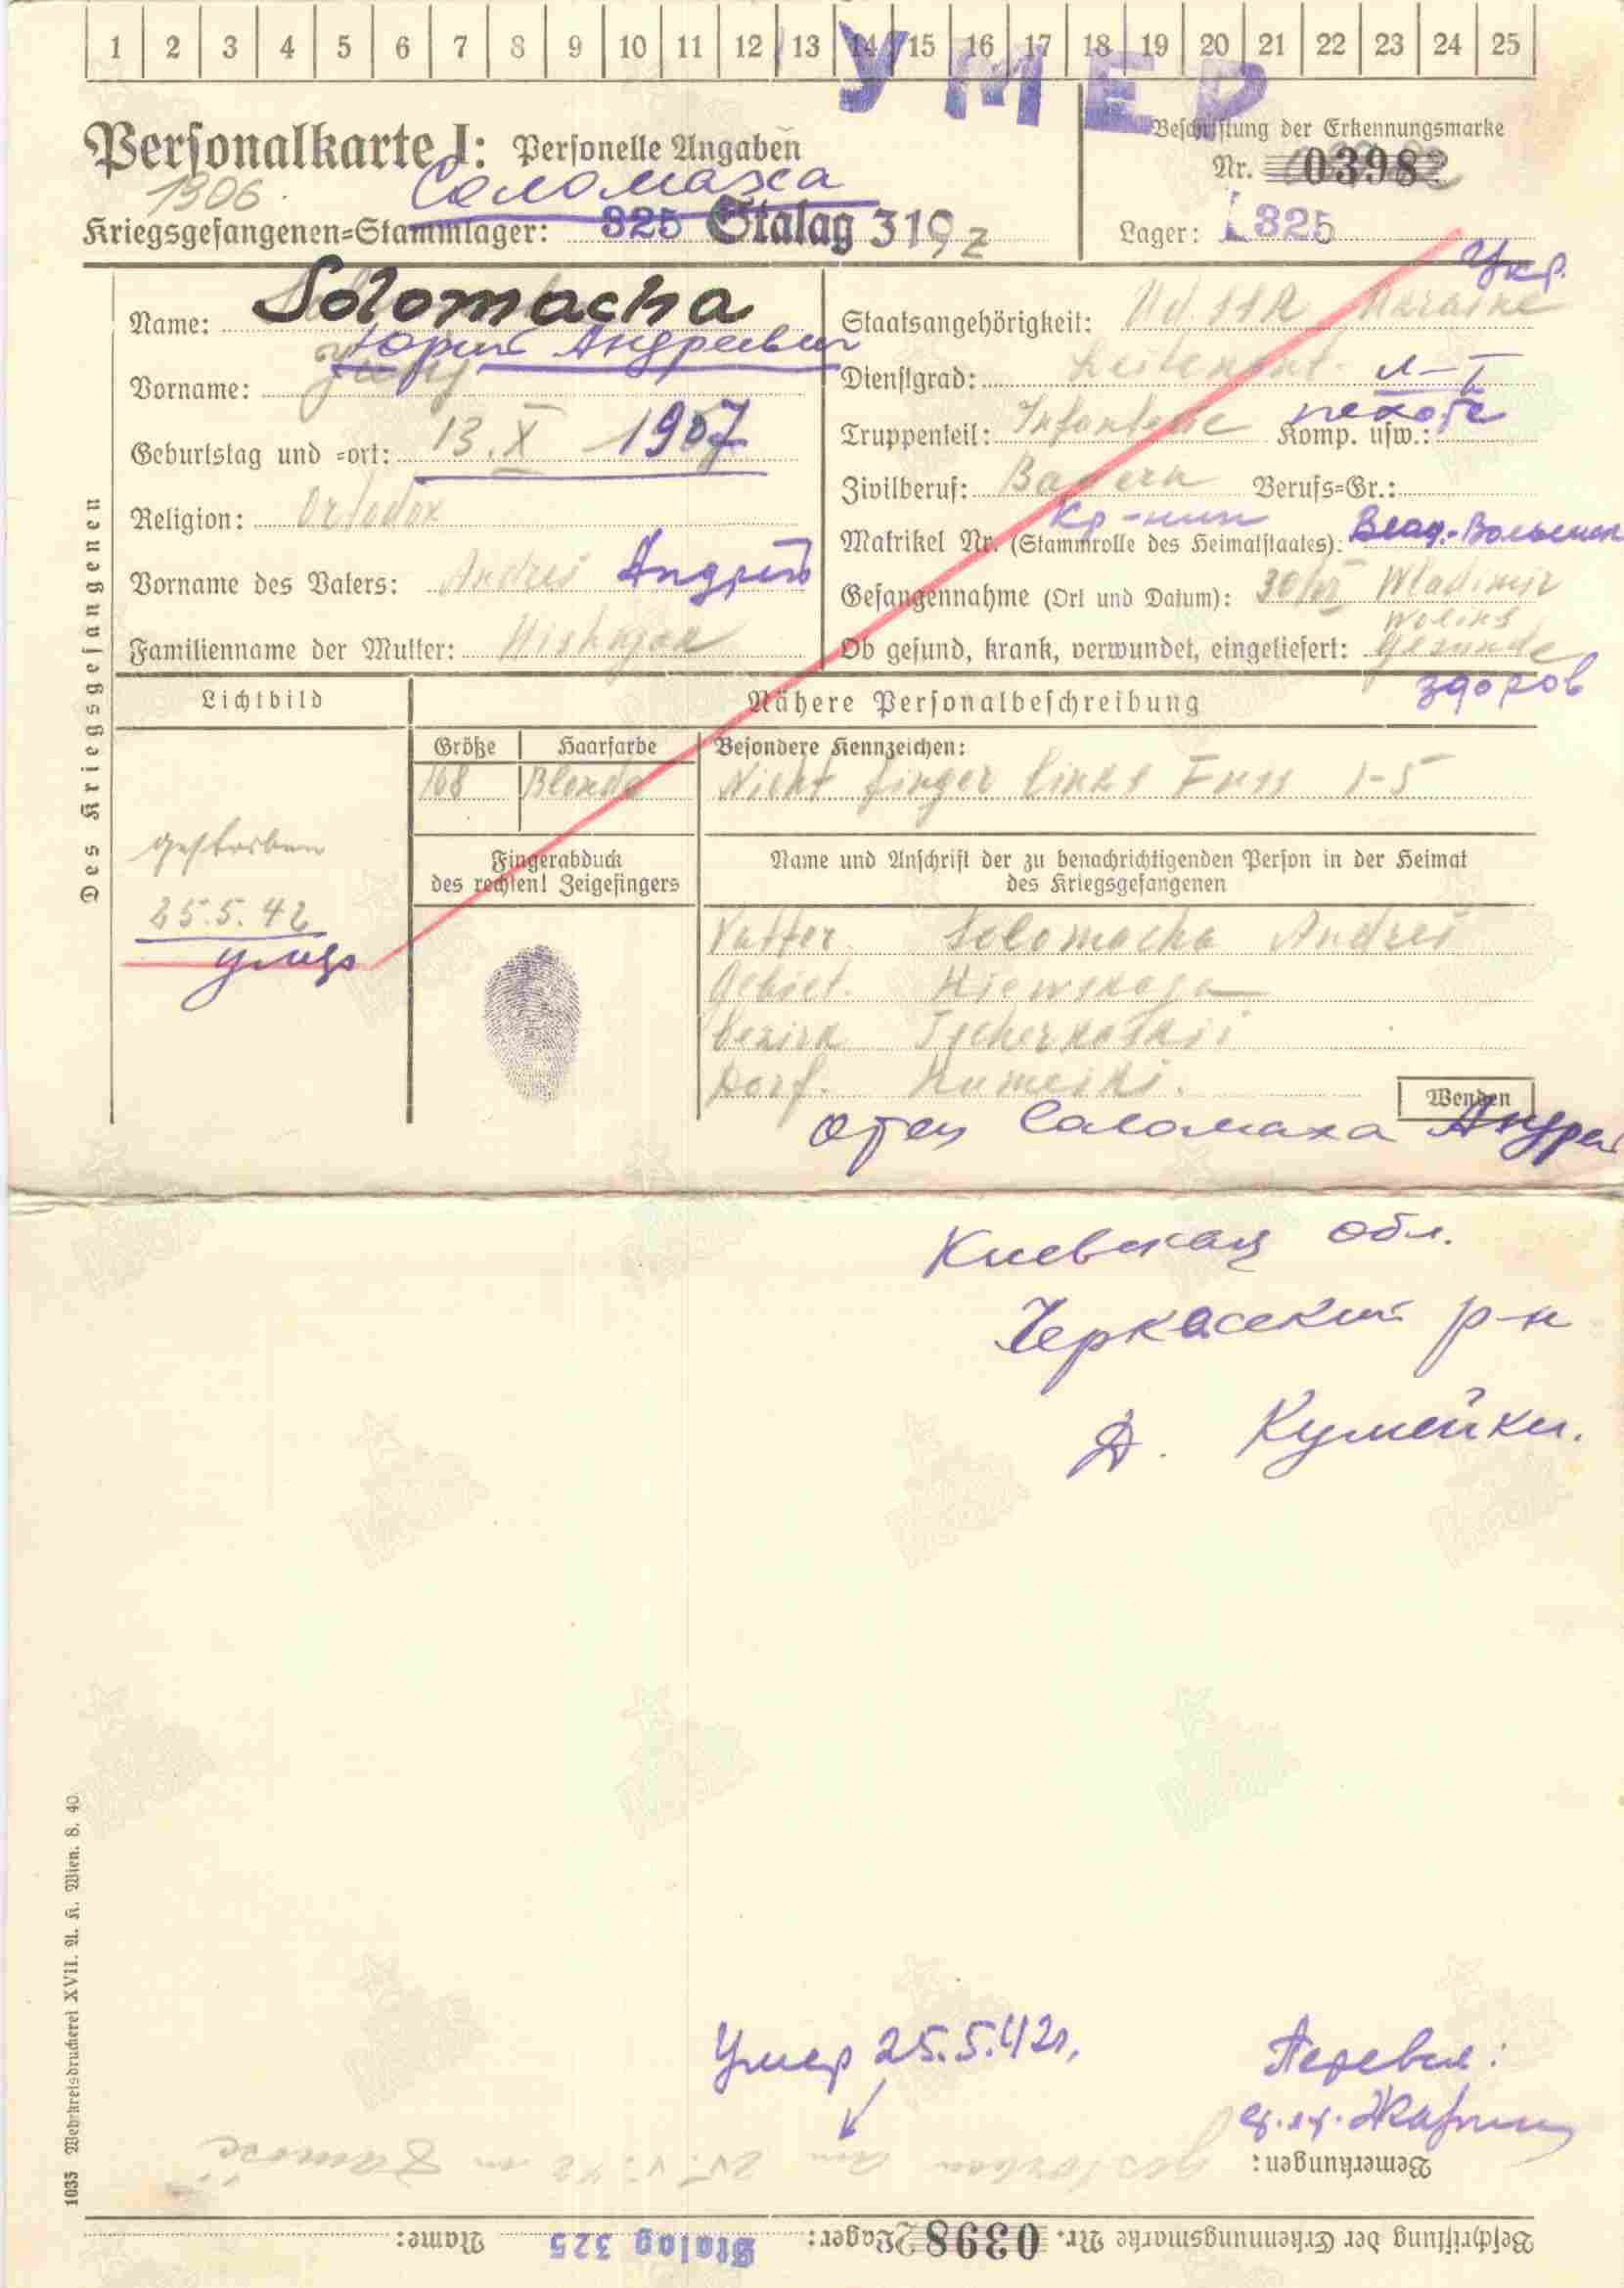 1 2 3 4 5 6 7 8 9 10 11 12 13 14 15 16 17 18 19 20 21 22 23 24 25
УМЕР
Personalkarte I: Personelle Angaben
Beschriftung der Erkennungsmarke
1906.
Соломаха
Nr. 03982
Kriegsgefangenen=Stammlager: 325 Stalag 319 z
Lager: 325
Укр.
Des Kriegsgefangenen
Name: Solomacha
Юрий Андреевич
Vorname:
Geburtstag und =ort: 13. X 1907
Religion: Ortodox
Vorname des Vaters: Andrei Андрей
Familienname der Mutter:
Staatsangehörigkeit: Ud. SSR Ukraine
Dienstgrad: Leitenant л-т
Truppenteil: Infanterie Komp. usw.: пехота
Zivilberuf: Bauern Berufs=Gr.:
кр-нин
Matrikel Nr. (Stammrolle des Heimatstaates): Влад.-Волынск
Gefangennahme (Ort und Datum): 30/VI Wladimir
Wolins
Ob gesund, krank, verwundet, eingeliefert: Gesunde
здоров
Lichtbild
Nähere Personalbeschreibung
Größe Haarfarbe Besondere Kennzeichen:
168 Blonde Nicht finger links Fuss 1-5
gestorben
25.5.42
умер
Fingerabdruck
des rechten! Zeigefingers
Name und Anschrift der zu benachrichtigenden Person in der Heimat
des Kriegsgefangenen
Vatter Solomacha Andrei
Gebiet. Kiewskaja
bezirk Tscherkaskii
Dorf. Kumeiki.
Wenden
отец Соломаха Андрей
Киевская обл.
Черкасский р-н
д. Кумейки.
1035 Wehrkreisdruckerei XVII. A. K. Wien. 8. 40
Умер 25.5.42г.
Перевел:
Bemerkungen: gestorben am 25.V.42 in Zamosc
Beschriftung der Erkennungsmarke Nr. 03982 Lager: Stalag 325 Name: